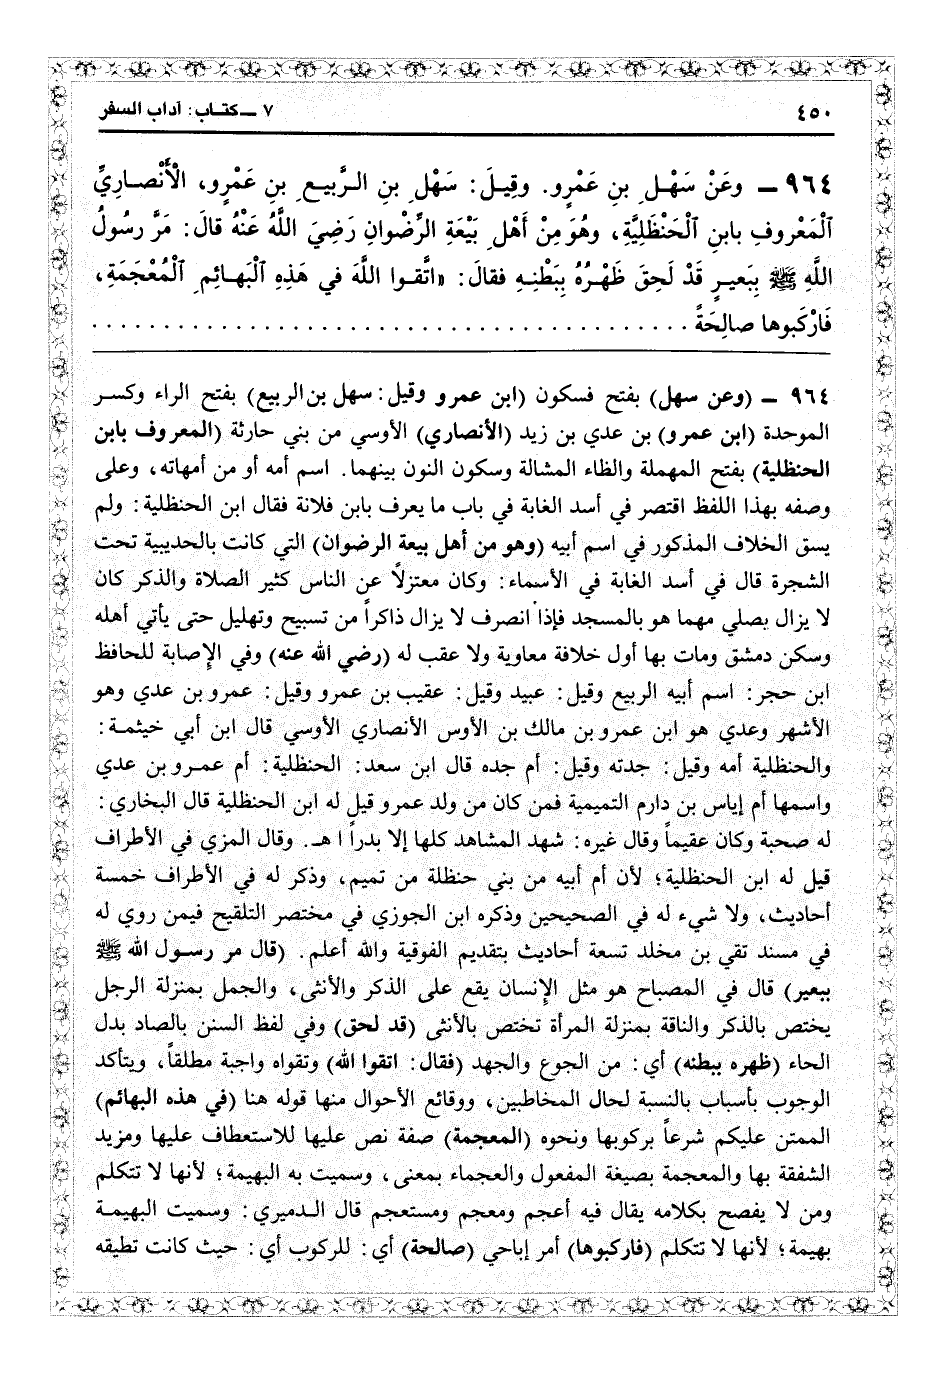 ٤٥٠
٧ ــ كتاب: آداب السفر
٩٦٤ ــ وعَنْ سَهْلِ بنِ عَمْرٍو. وقِيلَ: سَهْلِ بنِ الرَّبيعِ بنِ عَمْرٍو، الْأَنْصارِيِّ
الْمَعْروفِ بابنِ الْحَنْظَلِيَّةِ، وهُوَ مِنْ أَهْلِ بَيْعَةِ الرِّضْوانِ رَضِيَ اللَّهُ عَنْهُ قالَ: مَرَّ رسُولُ
اللَّهِ ﷺ بِبَعيرٍ قَدْ لَحِقَ ظَهْرُهُ بِبَطْنِهِ فقالَ: «اتَّقوا اللَّهَ في هَذِهِ الْبَهائمِ الْمُعْجَمَةِ،
فَارْكَبُوها صالِحَةً . . . . . . . . . . . . . . . . . . . . . . . . . . . . . . . . . . . . . . . . . .
٩٦٤ ــ (وعن سهل) بفتح فسكون (ابن عمرو وقيل: سهل بن الربيع) بفتح الراء وكسر
الموحدة (ابن عمرو) بن عدي بن زيد (الأنصاري) الأوسي من بني حارثة (المعروف بابن
الحنظلية) بفتح المهملة والظاء المشالة وسكون النون بينهما. اسم أمه أو من أمهاته، وعلى
وصفه بهذا اللفظ اقتصر في أسد الغابة في باب ما يعرف بابن فلانة فقال ابن الحنظلية: ولم
يسق الخلاف المذكور في اسم أبيه (وهو من أهل بيعة الرضوان) التي كانت بالحديبية تحت
الشجرة قال في أسد الغابة في الأسماء: وكان معتزلاً عن الناس كثير الصلاة والذكر كان
لا يزال يصلي مهما هو بالمسجد فإذا انصرف لا يزال ذاكراً من تسبيح وتهليل حتى يأتي أهله
وسكن دمشق ومات بها أول خلافة معاوية ولا عقب له (رضي الله عنه) وفي الإصابة للحافظ
ابن حجر: اسم أبيه الربيع وقيل: عبيد وقيل: عقيب بن عمرو وقيل: عمرو بن عدي وهو
الأشهر وعدي هو ابن عمرو بن مالك بن الأوس الأنصاري الأوسي قال ابن أبي خيثمة:
والحنظلية أمه وقيل: جدته وقيل: أم جده قال ابن سعد: الحنظلية: أم عمرو بن عدي
واسمها أم إياس بن دارم التميمية فمن كان من ولد عمرو قيل له ابن الحنظلية قال البخاري:
له صحبة وكان عقيماً وقال غيره: شهد المشاهد كلها إلا بدراً اهـ. وقال المزي في الأطراف
قيل له ابن الحنظلية؛ لأن أم أبيه من بني حنظلة من تميم، وذكر له في الأطراف خمسة
أحاديث، ولا شيء له في الصحيحين وذكره ابن الجوزي في مختصر التلقيح فيمن روي له
في مسند تقي بن مخلد تسعة أحاديث بتقديم الفوقية والله أعلم. (قال مر رسول الله ﷺ
ببعير) قال في المصباح هو مثل الإنسان يقع على الذكر والأنثى، والجمل بمنزلة الرجل
يختص بالذكر والناقة بمنزلة المرأة تختص بالأنثى (قد لحق) وفي لفظ السنن بالصاد بدل
الحاء (ظهره ببطنه) أي: من الجوع والجهد (فقال: اتقوا الله) وتقواه واجبة مطلقاً، ويتأكد
الوجوب بأسباب بالنسبة لحال المخاطبين، ووقائع الأحوال منها قوله هنا (في هذه البهائم)
الممتن عليكم شرعاً بركوبها ونحوه (المعجمة) صفة نص عليها للاستعطاف عليها ومزيد
الشفقة بها والمعجمة بصيغة المفعول والعجماء بمعنى، وسميت به البهيمة؛ لأنها لا تتكلم
ومن لا يفصح بكلامه يقال فيه أعجم ومعجم ومستعجم قال الدميري: وسميت البهيمة
بهيمة؛ لأنها لا تتكلم (فاركبوها) أمر إباحي (صالحة) أي: للركوب أي: حيث كانت تطيقه